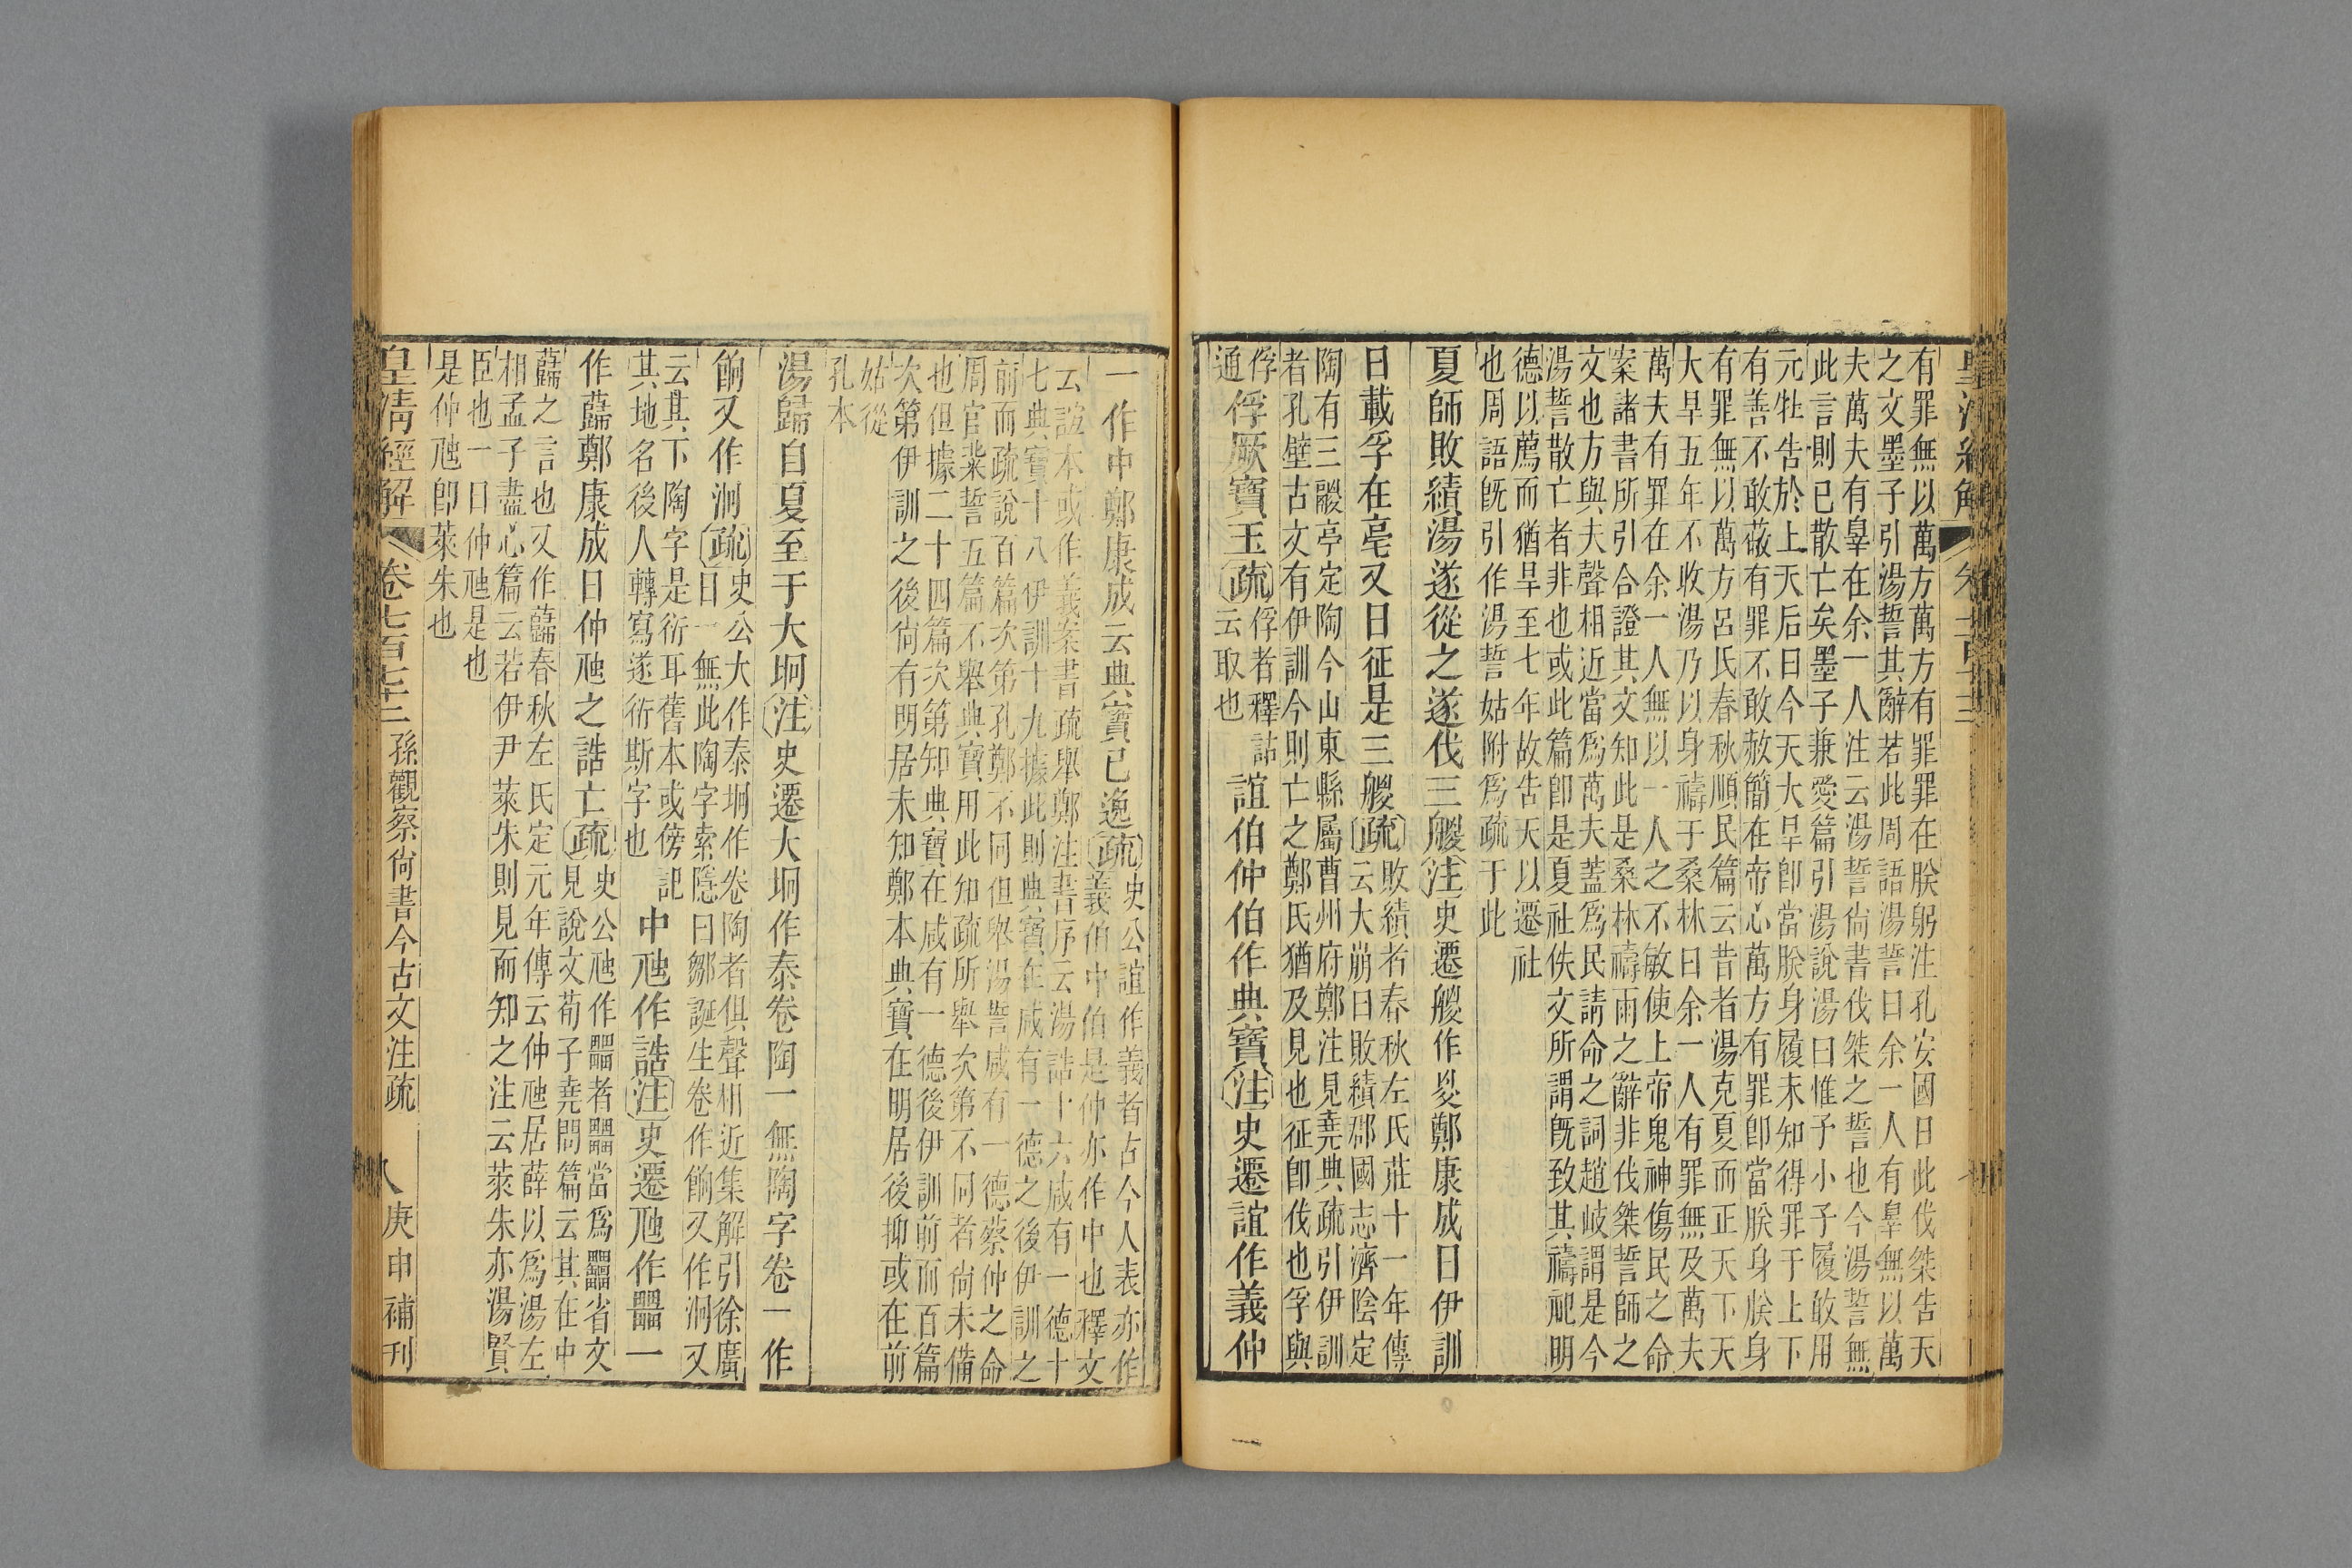 有罪無以萬方萬方有罪罪在朕躬注孔安國曰此伐桀告天
之文墨子引湯誓其辭若此周語湯誓曰余一人有辠無以萬
夫萬夫有辠在余一人注云湯誓尙書伐桀之誓也今湯誓無
此言則已散亡矣墨子兼愛篇引湯說湯曰惟予小子履敢用
元牡告於上天后曰今天大旱卽當朕身履未知得罪于上下
有善不敢蔽有罪不敢赦簡在帝心萬方有罪卽當朕身朕身
有罪無以萬方呂氏春秋順民篇云昔者湯克夏而正天下天
大旱五年不收湯乃以身禱于桑林曰余一人有罪無及萬夫
萬夫有罪在余一人無以一人之不敏使上帝鬼神傷民之命
案諸書所引合證其文知此是桑林禱雨之辭非伐桀誓師之
文也方與夫聲相近當爲萬夫蓋爲民請命之詞趙岐謂是今
湯誓散亡者非也或此篇卽是夏社佚文所謂旣致其禱祀明
德以薦而猶旱至七年故告天以遷社
也周語旣引作湯誓姑附爲疏于此
夏師敗績湯遂從之遂伐三朡注史遷朡作㚇鄭康成曰伊訓
曰載孚在亳又曰征是三朡疏敗績者春秋左氏莊十一年傳
云大崩曰敗績郡國志濟陰定
陶有三鬷亭定陶今山東縣屬曹州府鄭注見堯典疏引伊訓
者孔壁古文有伊訓今則亡之鄭氏猶及見也征卽伐也孚與
俘
通俘厥寶玉疏俘者釋詁
云取也誼伯仲伯作典寶注史遷誼作義仲
一作中鄭康成云典寶已逸疏史公誼作義者古今人表亦作
義伯中伯是仲亦作中也釋文
云誼本或作義案書疏舉鄭注書序云湯誥十六咸有一德十
七典寶十八伊訓十九據此則典寶在咸有一德之後伊訓之
前而疏說百篇次第孔鄭不同但舉湯誓咸有一德蔡仲之命
周官粊誓五篇不舉典寶用此知疏所舉次第不同者尙未備
也但據二十四篇次第知典寶在咸有一德後伊訓前而百篇
次第伊訓之後尙有明居未知鄭本典寶在明居後抑或在前
姑從
孔本
湯歸自夏至于大坰注史遷大坰作泰卷陶一無陶字卷一作
餉又作泂疏史公大作泰坰作卷陶者俱聲相近集解引徐廣
曰一無此陶字索隱曰鄒誕生卷作餉又作泂又
云其下陶字是衍耳舊本或傍記
其地名後人轉寫遂衍斯字也中虺作誥注史遷虺作𤴐一
作蘬鄭康成曰仲虺之誥亡疏史公虺作𤴐者𤴐當爲𤴐省文
見說文荀子堯問篇云其在中
蘬之言也又作蘬春秋左氏定元年傳云仲虺居薛以爲湯左
相孟子盡心篇云若伊尹萊朱則見而知之注云萊朱亦湯賢
臣也一曰仲虺是也
是仲虺卽萊朱也
皇清經解 卷七百七十三 孫觀察尙書今古文注疏 八 庚申補刊